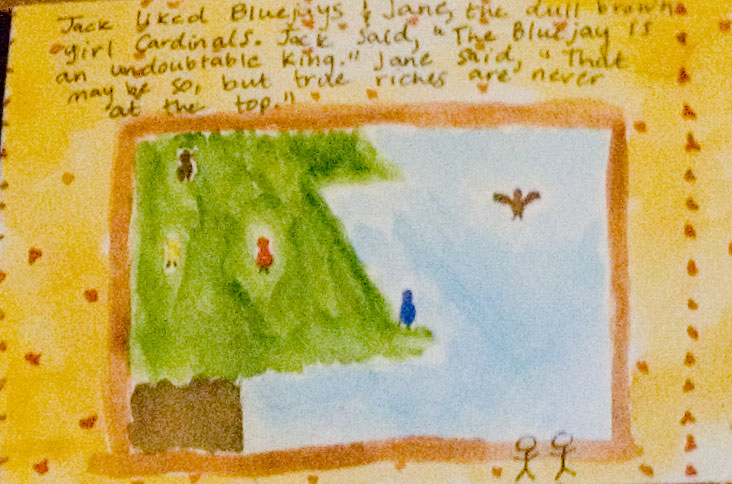 Jack liked Bluejays & Jane, the dull brown
girl Cardinals. Jack said, "The Bluejay is
an undoubtable king." Jane said, "That
may be so, but true riches are never
at the top."